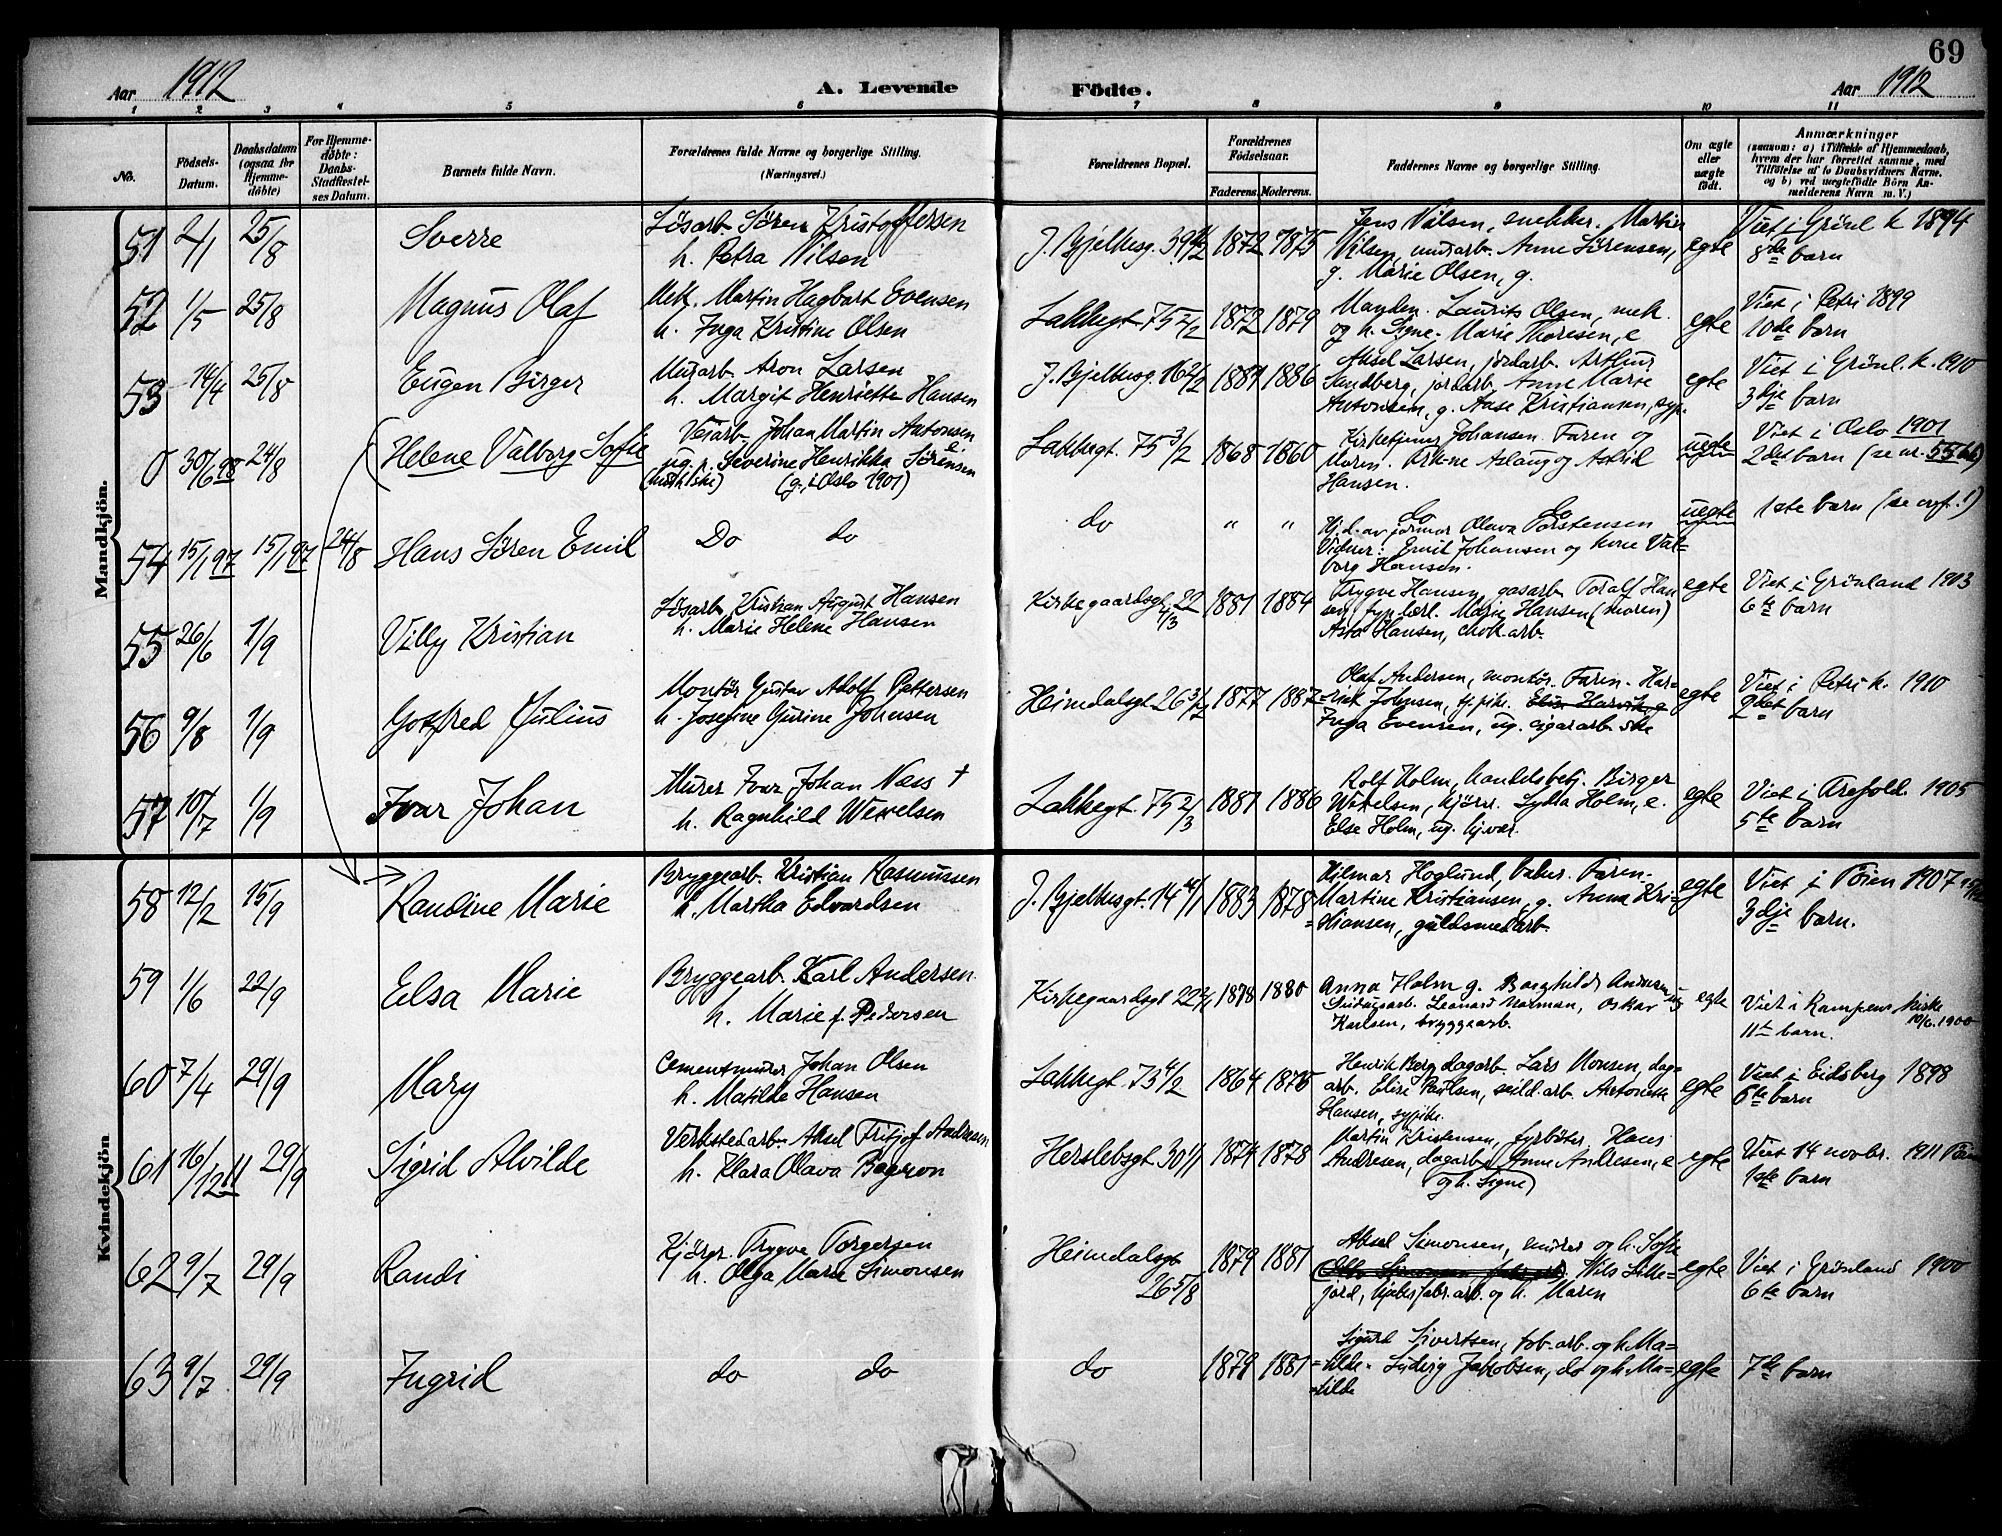 69
Aar 1912
A. Levende
Födte.
Aar 1912
1 2 3 4 5 6 7 8 9 10 11
No.
Födsels-Datum.
Daabsdatum (ogsaa for Hjemme-döbte)
For Hjemme-döbte: Daabs-Stadfæstel-ses Datum.
Barnets fulde Navn.
Forældrenes fulde Navne og borgerlige Stilling. (Næringsvei.)
Forældrenes Bopæl.
Forældrenes Födselsaar.
Faderens. Moderens.
Faddernes Navne og borgerlige Stilling.
Om ægte eller uægte födt.
Anmærkninger
(saasom: a) i Tilfælde af Hjemmedaab, hvem der har forrettet samme, med Tilföielse af to Daabsvidners Navne. og b) ved uægtefödte Börn An-melderens Navn m. V.)
Mandkjön.
51 2/1 25/8 Sverre
Lösarb. Sören Kristoffersen
h. Petra Nilsen
J. Bjelkesg. 1872 1875
Jens Nilsen, snekker. Martin
Nilsen, murarb. Anne Sörensen,
g. Marie Olsen, g.
egte
Viet i Grönl k 1894
8de barn
52 1/5 25/8 Magnus Olaf
Mek. Martin Hagbart Evensen
h. Inga Kristine Olsen
Lakkegt. 75 2/2 1872 1879
Manden. Laurits Olsen, mek.
og h. Signe. Marie Thoresen, e
egte
Viet i Petri 1899
10de barn
53 14/4 25/8 Eugen Birger
Murarb. Aron Larsen
h. Margit Henriette Hansen
J. Bjelkesg. 16 2/2 1881 1886
Aksel Larsen, jordarb. Arthur
Sandberg, jordarb. Anne Marie
Antonsen, g. Aase Kristiansen, syp.
egte
Viet i Grönl. k. 1910
3dje barn
0 30/6 98 24/8 Helene Valborg Sofie
Veiarb. Johan Martin Antonsen
ug. p. Severine Henrikka Sörensen
(g. i Oslo 1901)
Lakkegt. 75 3/2 1868 1860
Kirketjener Johansen. Faren og
Moren. Aslaug og Astrid
Hansen.
uegte
Viet i Oslo 1901
2det barn (se nr.
54 15/1 97 15/1 97 24/8 Hans Sören Emil
Do do
do " "
do do
Hj.d. av jormor Olava Torstensen
Vidner: Emil Johansen og kone Val-
borg Hansen.
uegte
1ste barn
55 26/6 1/9 Villy Kristian
Lösarb. Kristian August Hansen
h. Marie Helene Hansen
Kirkegaardsgt. 22 4/3 1881 1884
Trygve Hansen, gasarb. Toralf Han
sen, Marie Hansen (moren)
Asta Hansen, chok. arb.
egte
Viet i Grönland 1903
6te barn
56 9/8 1/9 Gotfred Julius
Montör Gustav Adolf Pettersen
h. Josefine Gurine Johnsen
Heimdalsgt 26 3/2 1877 1887
Olaf Andersen, montör. Faren. Har-
riet Johnsen, tj. pike.
Inga Evensen, ug. cigararb. ske
egte
Viet i Petri k. 1910
2det barn
57 10/7 1/9 Ivar Johan
Murer Ivar Johan Næss †
h. Ragnhild Wevelsen
Lakkegt. 75 2/3 1881 1886
Rolf Holm, handelsbetj. Birger
Wevelsen, kjörer. Lydia Holm, e.
Else Holm, ug. hj. vær.
egte
Viet i 1905
5te barn
Kvindekjön
58 12/2 15/9 Randine Marie
Bryggearb. Kristian Rasmussen
h. Martha Edvardsen
J. Bjelkesgt. 14 4/1 1883 1878
Hilmar Hoglund, baker. Faren.
Martine Kristiansen, g. Anna Kri-
stiansen, guldsmedarb.
egte
Viet i Töien 1907
3dje barn.
59 1/6 22/9 Elsa Marie
Bryggearb. Karl Andersen
h. Marie f. Pedersen
Kirkegaardsgt 22 1878 1880
Anna Holm g. Borghild Andersen ug
Leonard Norman, Oskar
Karlsen, bryggearb.
egte
Viet i Kampens kirke
10/6. 1900
11te barn.
60 7/4 29/9 Mary
Cementmurer Johan Olsen
h. Matilde Hansen
Lakkegt. 73 4/2 1864 1875
Henrik Berg dagarb. Lars Monsen, dag-
arb. Elise Paulsen, Antonette
Hansen, sypike.
egte
Viet i Eidsberg 1898
6te barn
61 16/12 11 29/9 Sigrid Alvilde
Verkstedarb. Aksel Fritjof Andresen
h. Klara Olava Bearon
Herslebsgt. 30 1/1 1874 1878
Martin Kristensen, fyrböter, Hans
Andresen, dagarb. Anne Andresen, e
(og h. Signe)
egte
Viet 14 novbr. 1911
1ste barn
62 9/7 29/9 Randi
Kjörer. Trygve Torgersen
h. Olga Marie Simonsen
Heimdalsgt
26 5/8 1879 1881
Aksel Simonsen, murer og h. Sofie
Nils Lille-
jord, og h. Maren
egte
Viet i Grönland 1900
6te barn
63 9/7 29/9 Ingrid
do do
do 1879 1881
Sigurd Sivertsen, fab. arb. og h. Ma-
tilde. Ludvig Jakobsen, do og h. Ma-
tilde
egte
7de barn